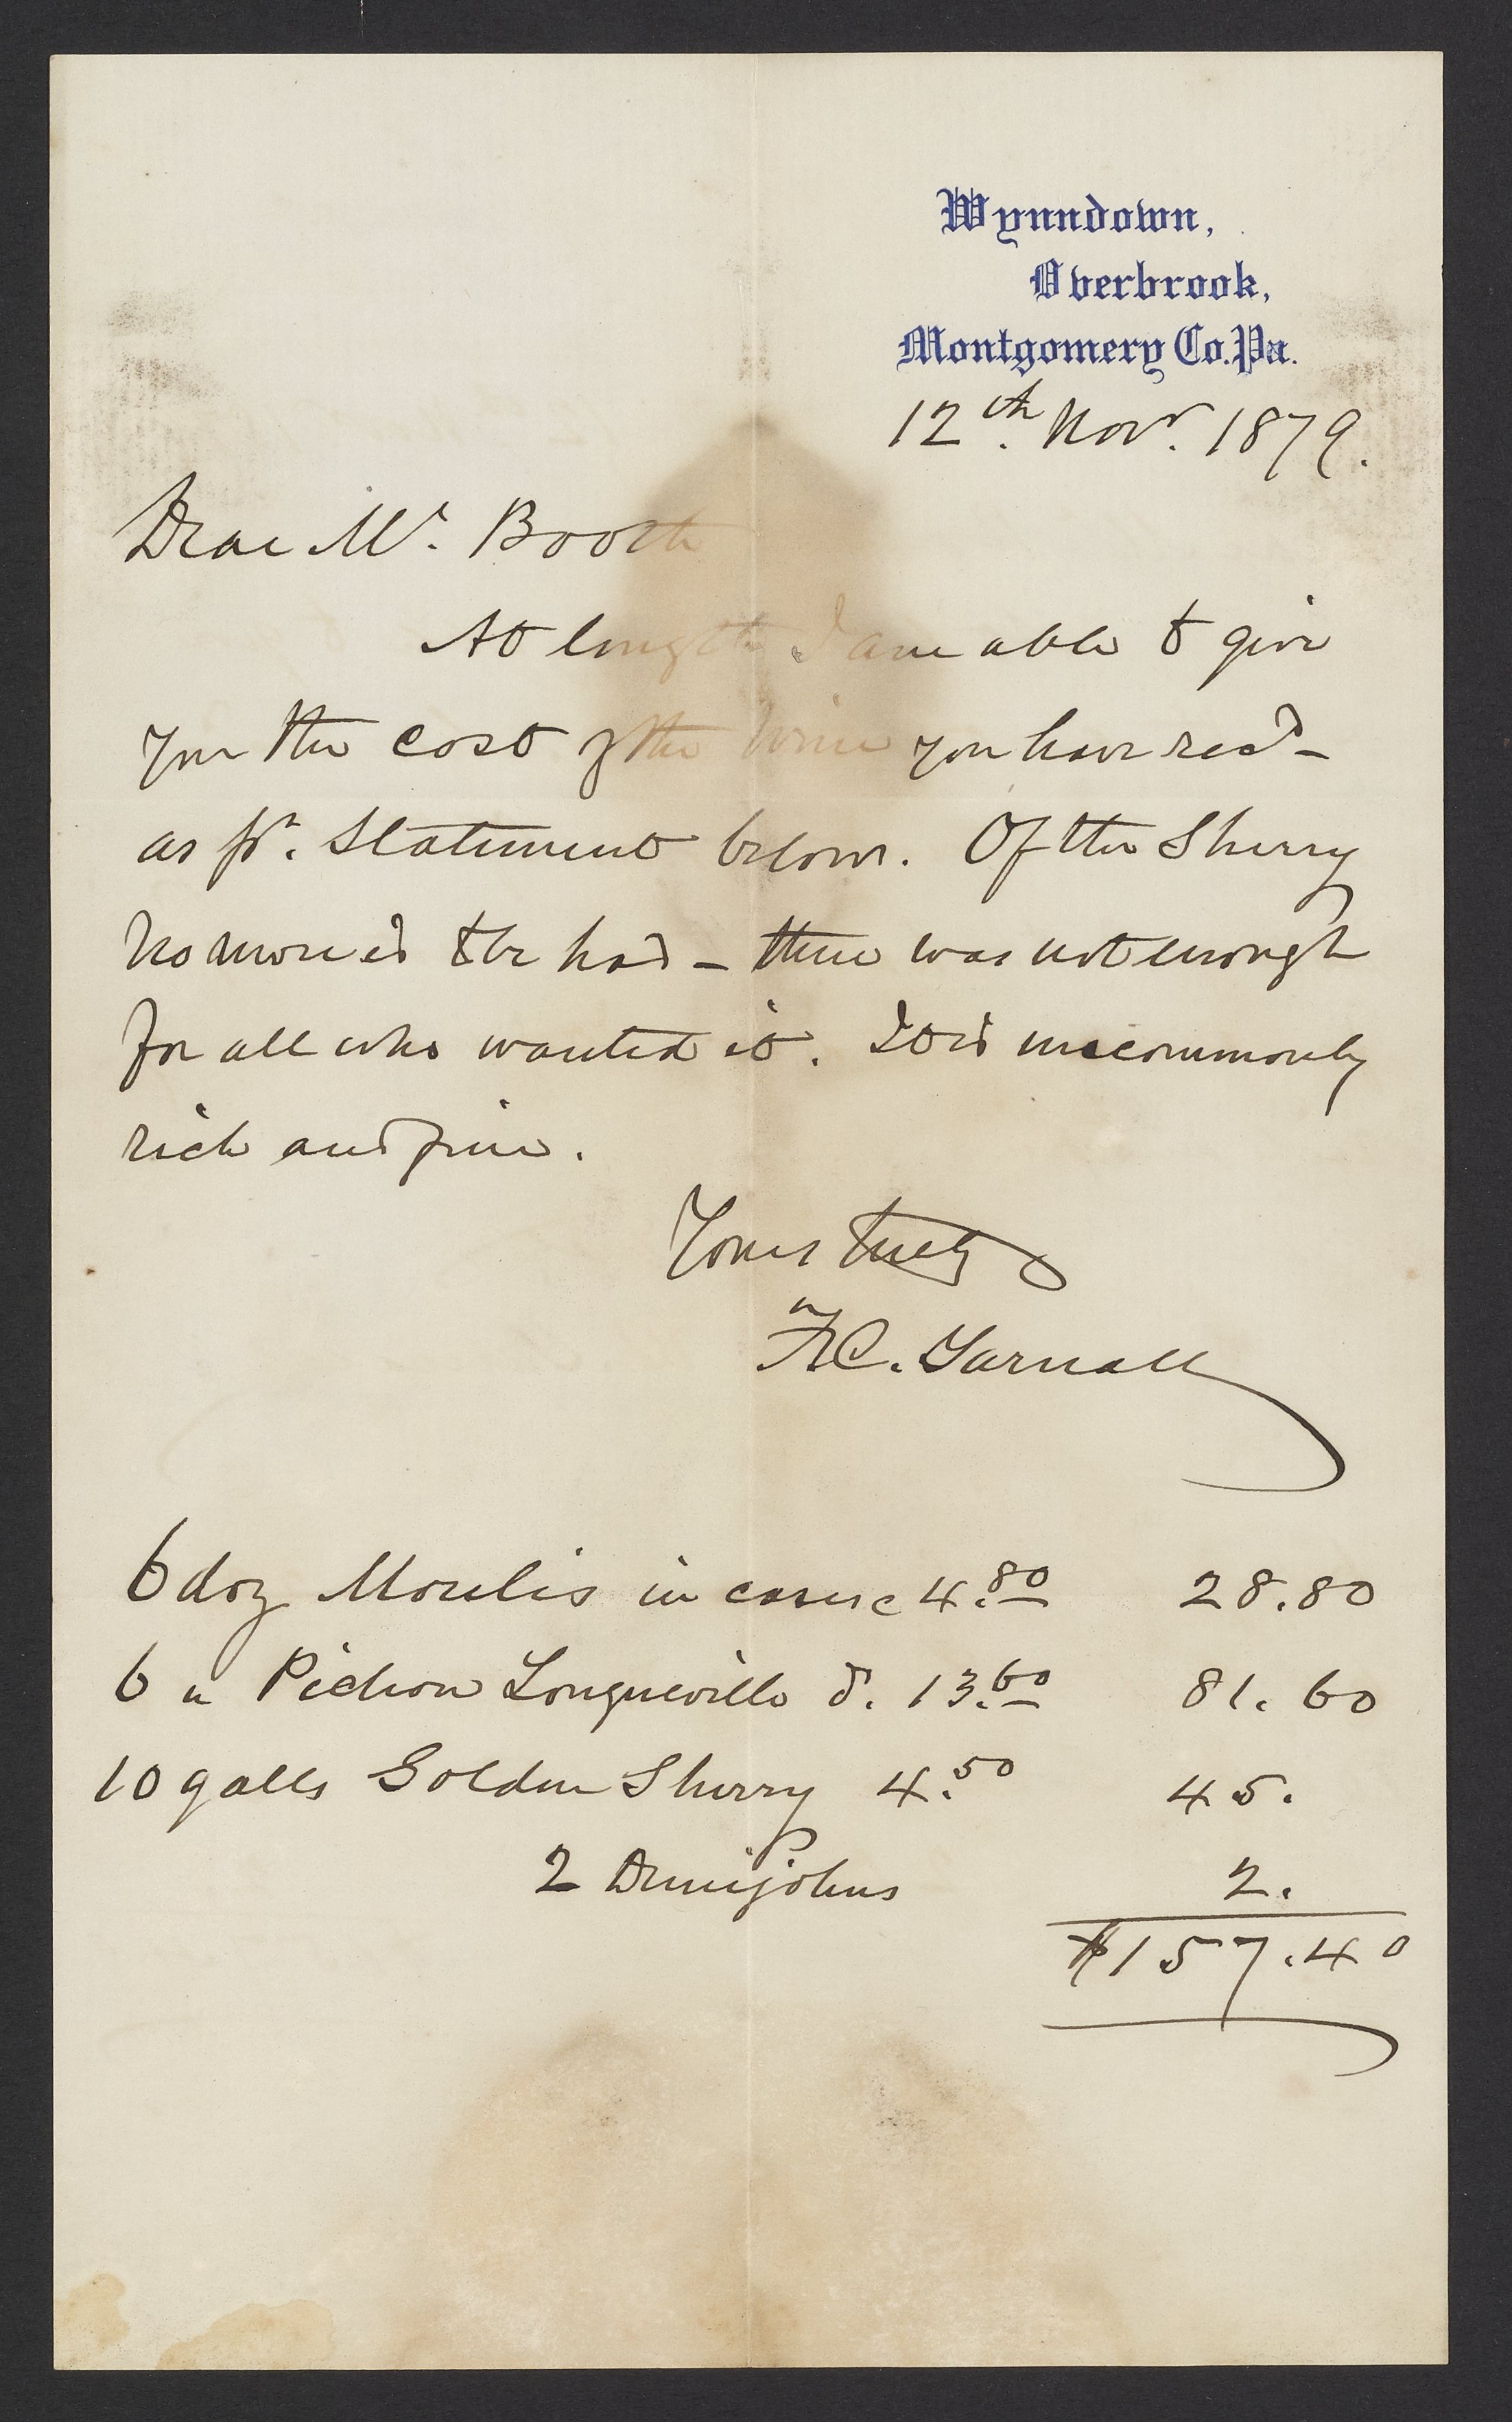 Wynndown,
Overbrook,
Montgomery Co. Pa.
12th. Novr. 1879.
Dear Mr. Booth
At length I am able to give
you the cost of the Wine you have recd -
as pr. Statement below. Of the Sherry
no more is to be had - there was not enough
for all who wanted it. It is uncommonly
rich and fine.
Yours truly
F.C. Yarnall
6 doz Moulis in cases @ 4.80 28.80
6 " Pichon Longueville d. 13.60 81.60
10 galls Golden Sherry 4.50 45.
2 Demijohns 2.
$157.40